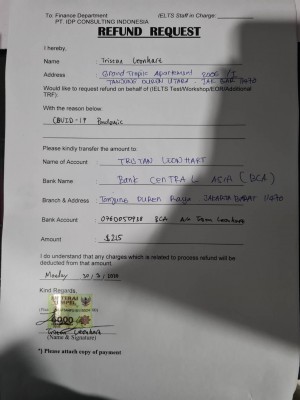 To: Finance Department IELTS Staff in Charge:
PT. IDP CONSULTING INDONESIA
REFUND REQUEST
I hereby,
Name : Tristan Leonhart
Address : Grand Tropic Apartement
TANJUNG DUREN UTARA
Would like to request refund on behalf of (IELTS Test/Workshop/EOR/Additional
TRF):
With the reason below:
COVID-19 Pandemic
Please kindly transfer the amount to:
Name of Account : TRISTAN LEONHART
Bank Name : Bank CENTRAL ASIA (BCA)
Branch & Address : Tanjung Duren Raya JAKARTA BARAT 11470
Bank Account : BCA
Amount : $215
I do understand that any charges which is related to process refund will be
deducted from that amount.
Monday
Kind Regards,
METERAI
TEMPEL
6000
Tristan Leonhart
(Name & Signature)
*) Please attach copy of payment